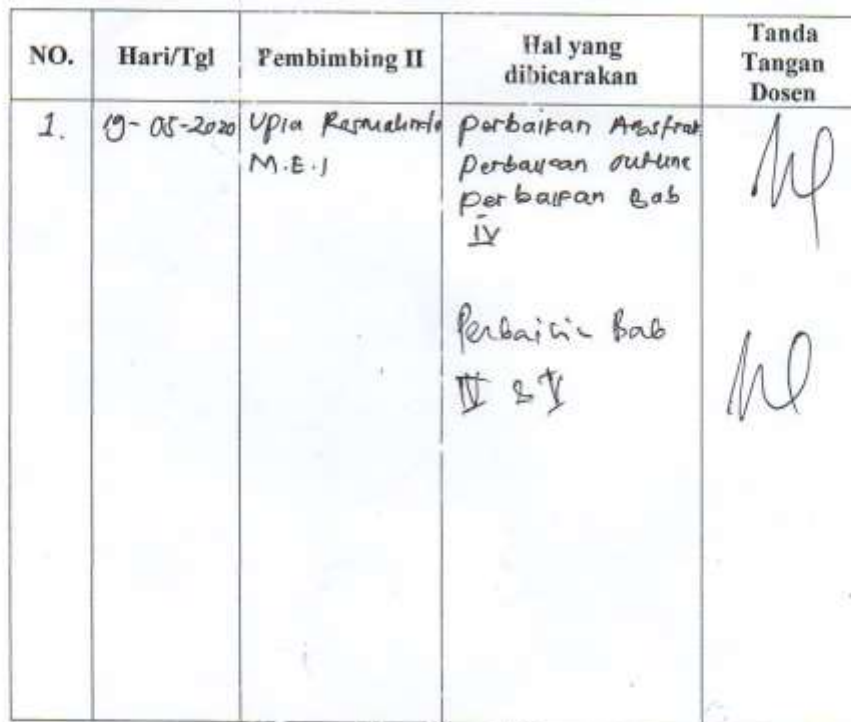 NO.
Hari/Tgl
Pembimbing II
Hal yang
dibicarakan
Tanda
Tangan
Dosen
1.
19-05-2020
Upia Rosmalinda
M.E.I
perbaikan Abstrak
perbaikan outline
perbaikan Bab
IV
Perbaiki Bab
IV & V